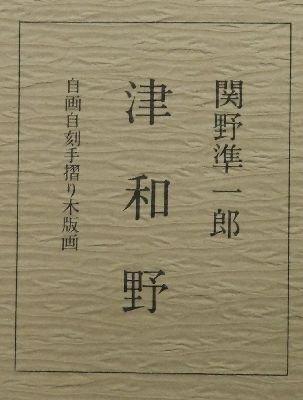 関野準一郎
津和野
自画自刻手摺り木版画